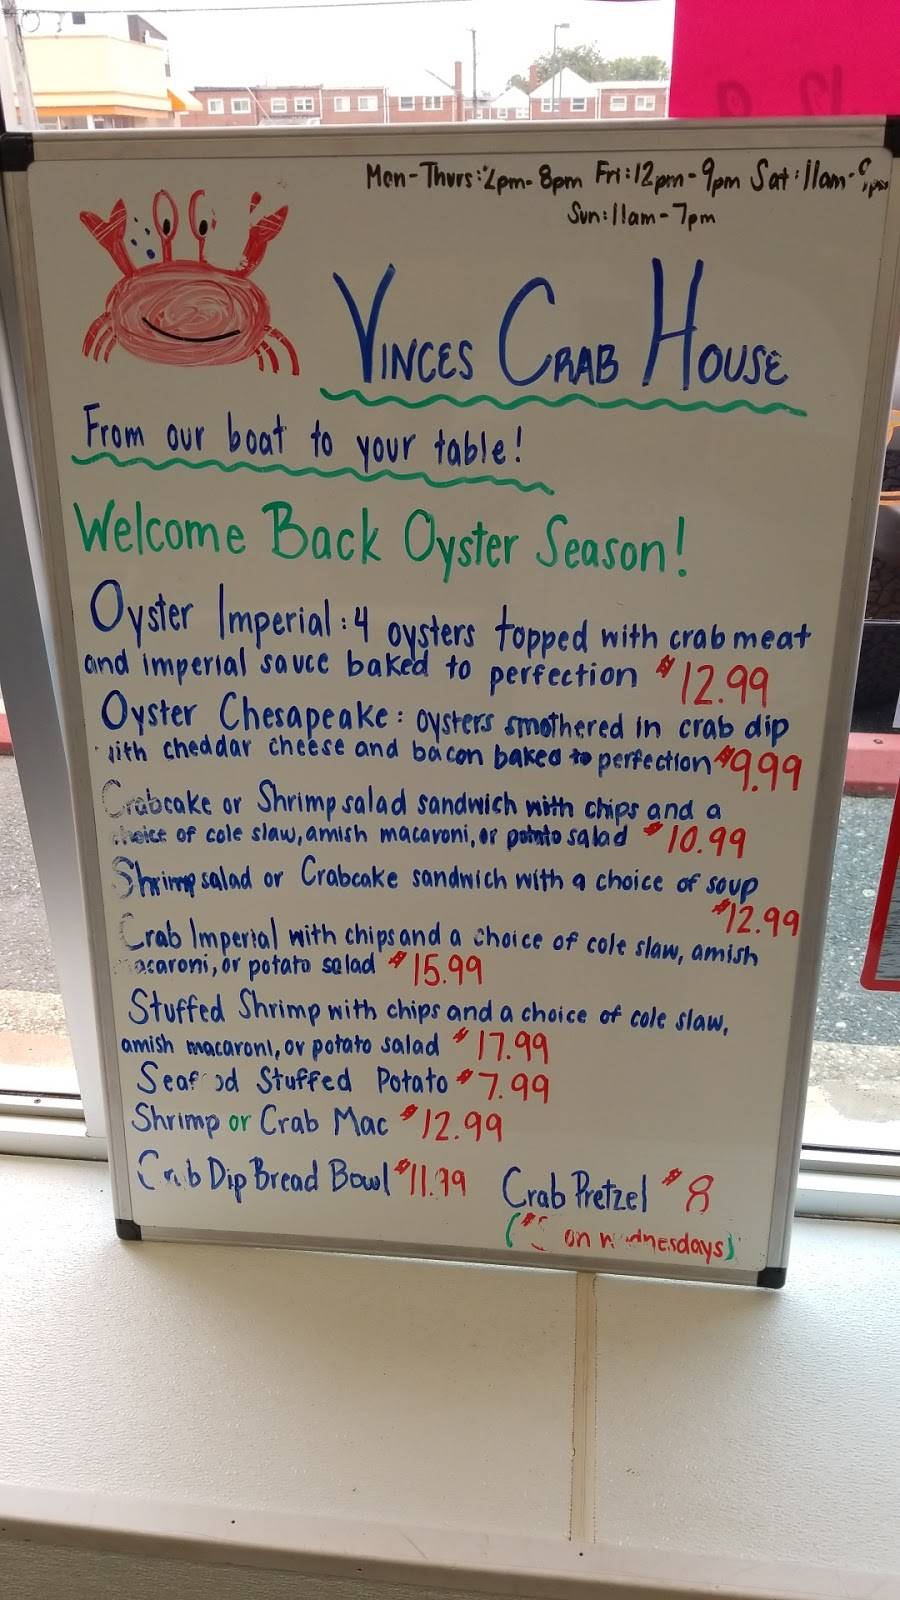 Mon-Thurs:2pm-8pm Fri:12pm-9pm Sat:11am-9pm
Sun:11am-7pm
VINCES CRAB HOUSE
From our boat to your table!
Welcome Back Oyster Season!
Oyster Imperial: 4 oysters topped with crab meat
and imperial sauce baked to perfection $12.99
Oyster Chesapeake: oysters smothered in crab dip
with cheddar cheese and bacon baked to perfection $9.99
Crabcake or Shrimp salad sandwich with chips and a
choice of cole slaw, amish macaroni, or potato salad $10.99
Shrimp salad or Crabcake sandwich with a choice of soup
$12.99
Crab Imperial with chips and a choice of cole slaw, amish
macaroni, or potato salad $15.99
Stuffed Shrimp with chips and a choice of cole slaw,
amish macaroni, or potato salad $17.99
Seafood Stuffed Potato $7.99
Shrimp or Crab Mac $12.99
Crab Dip Bread Bowl $11.99 Crab Pretzel $8
on wednesdays)